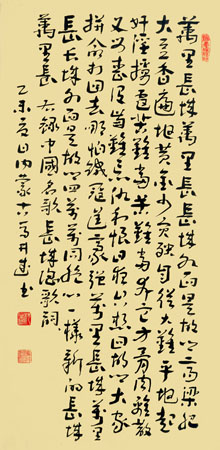 萬里長城萬里長長城外面是故鄉高粱肥
大豆香遍地黃金少灾殃自從大難平地起
奸淫擄掠苦難當苦難當奔他方骨肉離散
父母喪沒齒難忘仇和恨日夜只想回故鄉大家
拼命打回去那怕逞豪強萬里長城萬里
長長城外面是故鄉四萬萬同胞心一樣新的長城
萬里長 右錄中國名歌長城謠歌詞
乙未夏日內蒙古馬井建書